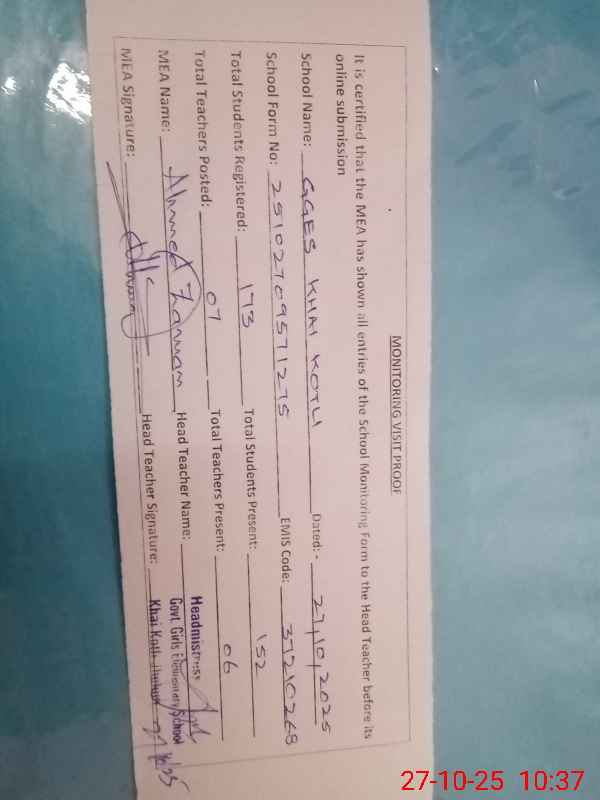 MONITORING VISIT PROOF
It is certified that the MEA has shown all entries of the School Monitoring Form to the Head Teacher before its
online submission
School Name: GGES KHAI KOTLI Dated:- 27,10,2025
School Form No: 25102709571275 EMIS Code: 37210268
Total Students Registered: 173 Total Students Present: 152
Total Teachers Posted: 07 Total Teachers Present: 06
MEA Name: Ahmed Zaman Head Teacher Name: Headmistress
Govt. Girls Elementary School
MEA Signature: Head Teacher Signature: Khai Kotli
27-10-25 10:37